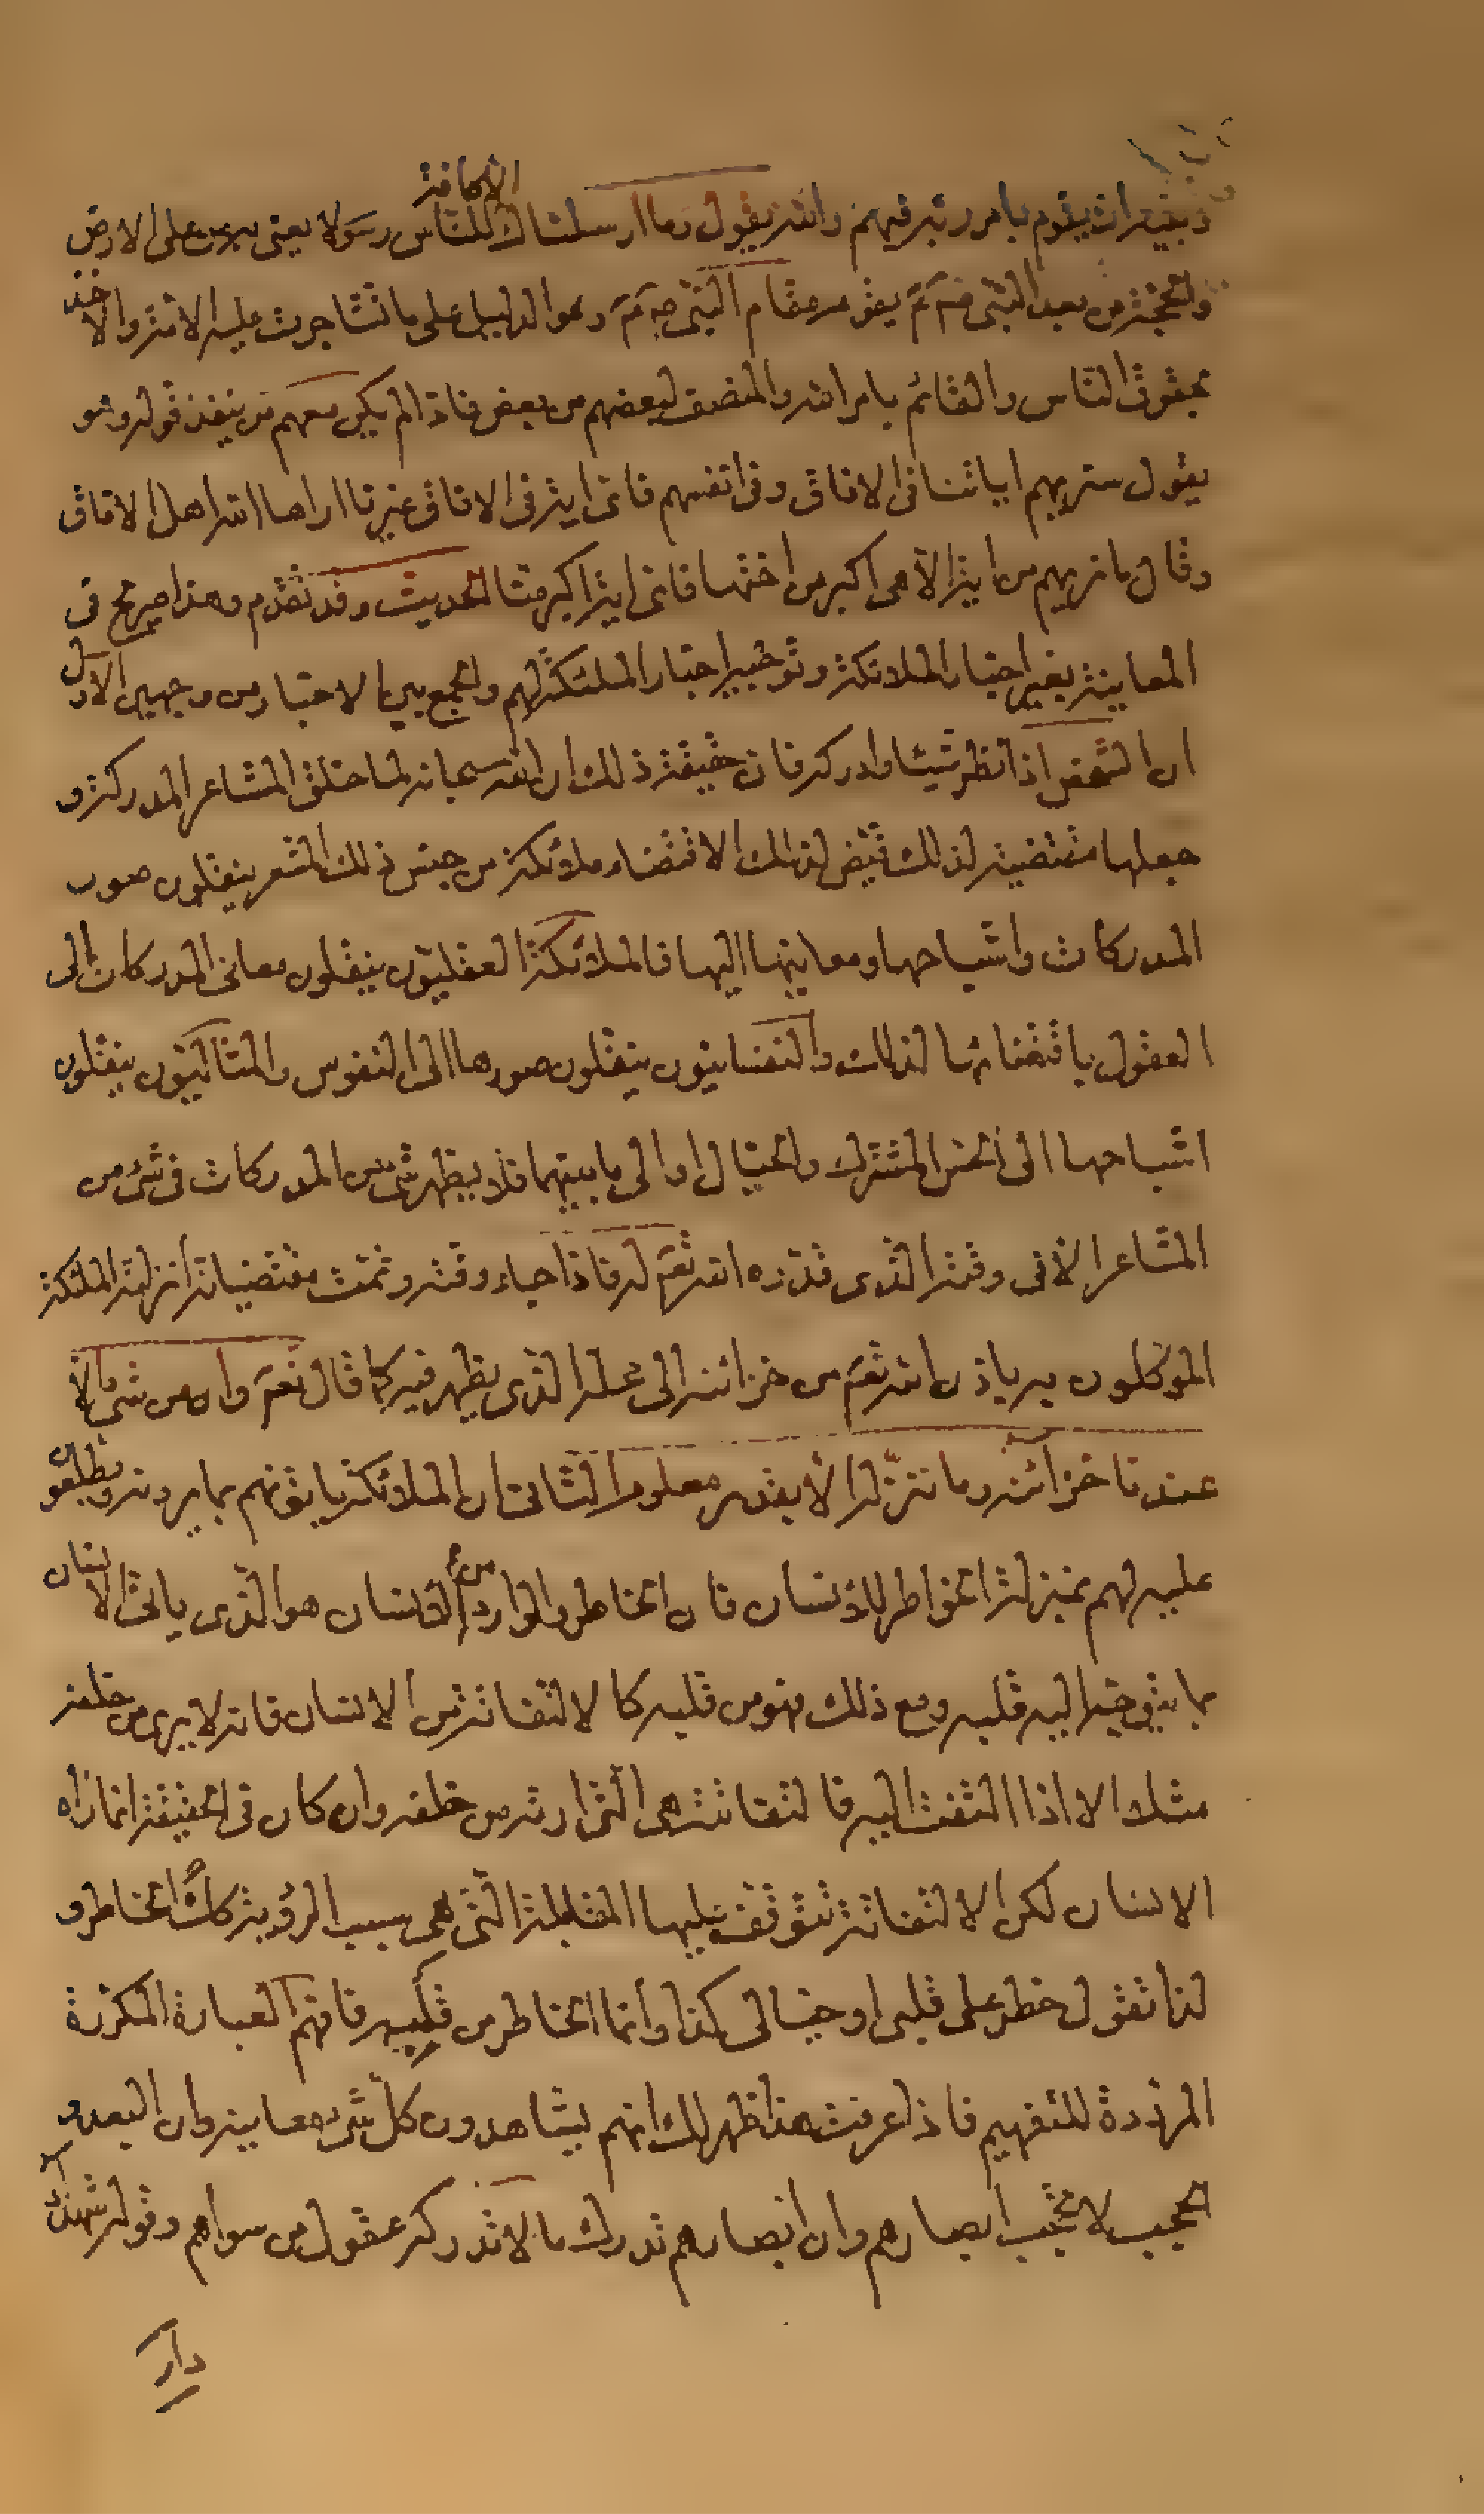 يقوم بامر ربه فيهم والله يقول وما ارسلناك الا كافة للناس رسولا يعنى به من على الارض
والحجة من بعد النبى ص يقوم مقام النبى ص وهو الدليل على ما تشاجرت عليه الامة والاخذ
بحقوق الناس والقائم بامر الله والمنصف لبعضهم من بعض فاذا لم يكن معهم من ينفذ قوله وهو
يقول سنريهم اياتنا فى الافاق وفى انفسهم فاى اية فى الافاق غيرنا اراها الله اهل الافاق
وقال ما نريهم من اية الا هى اكبر من اختها فاى اية اكبر منا الحديث وقد تقدم وهذا صريح فى
المعاينة بغير اخبار الملائكة وتوجيه اخبار الملئكة لهم والجمع بين الاخبار من وجهين الاول
ان الشخص اذا نظر شيئا وادركه فان حقيقة ذلك ان الله سبحانه لما خلق المشاعر المدركة و
جعلها مقتضية لذلك قيض لذلك الاقتضاء ملائكة من جنس ذلك المشعر ينقلون صور
المدركات واشباحها ومعاينها اليها فالملائكة العقليون ينقلون معانى المدركات الى
العقول باقتضائها لذلك والنفسانيون ينقلون صورها الى النفوس والمثاليون ينقلون
اشباحها الى الحس المشترك والخيال او الى ما بينهما فلا يظهر شئ من المدركات فى شئ من
المشاعر الا فى وقته الذى قدره الله تعم له فاذا جاء وقته وتمت مقتضياته انزلته الملئكة
الموكلون به باذن الله تعم من خزائنه الى محله الذى يظهر فيه كما قال تعم وان من شئ الا
عندنا خزائنه وما ننزله الا بقدر معلوم الثانى ان الملائكة ياتونهم بما يريدونه ويطلعون
عليه لهم بمنزلة الخواطر للانسان فان الخاطر والوارد من الانسان هو الذى ياتى الانسان
بما يتوجه اليه قلبه ومع ذلك فهو من قلبه كالالتفاتة من الانسان فانه لا يرى من خلفه
مثلا الا اذا التفت اليه فالتفاتته هى التى ارته من خلفه وان كان فى الحقيقة انما راه
الانسان لكن الالتفاتة تتوقف عليها المقابلة التى هى سبب الرؤية كك الخاطر و
لذا تقول خطر على قلبى او خيالى كذا وانما الخاطر من قلبه فافهم العبارة المكررة
المرددة للتفهيم فاذا عرفت هذا ظهر لك انهم يشاهدون كل شئ معاينة وان البعد و
الحجب لا تحجب ابصارهم وان ابصارهم تدرك ما لا تدركه عقول من سواهم وقوله شهداء
دار